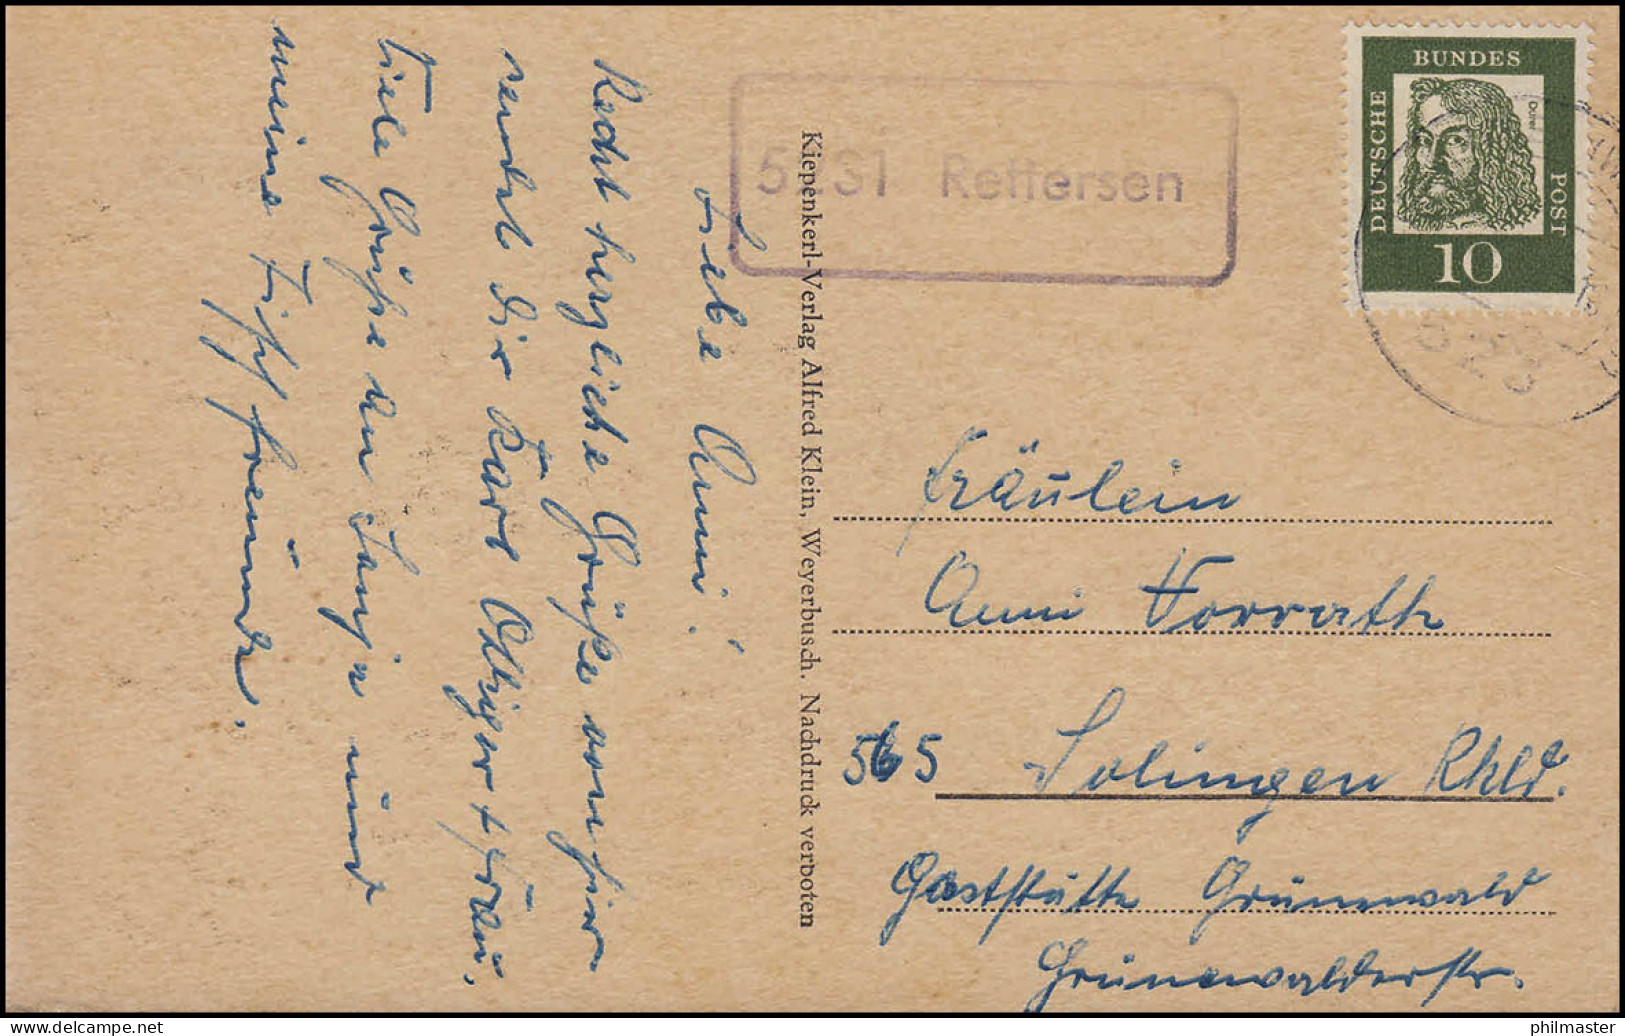 Liebe Anni!
Recht herzliche Grüße von hier
sendet dir Karl Ottiger + Frau.
Viele Grüße an Tanja und
meine Tischfreunde.
Kiepenkerl-Verlag Alfred Klein, Weyerbusch. Nachdruck verboten
Rettersen
BUNDES
DEUTSCHE
POST
Dürer
10
Fräulein
Anni Vorrath
565 Solingen Rhld.
Gaststätte Grünewald
Grünewalderstr.
philmaster